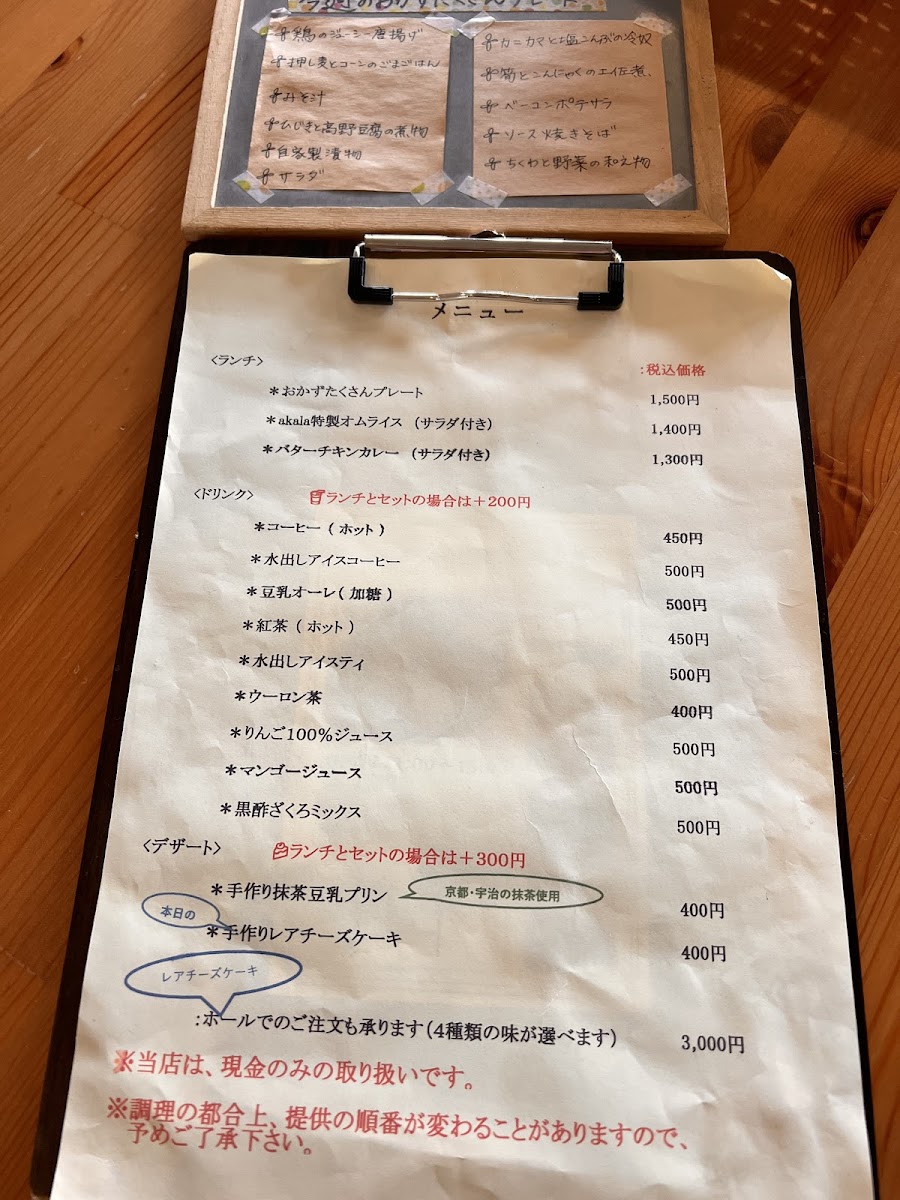 今週のおかずたくさんプレート
鶏のジューシー唐揚げ
押し麦とコーンのごまごはん
みそ汁
ひじきと高野豆腐の煮物
自家製漬物
サラダ
カニカマと塩こんぶの冷奴
筍とこんにゃくの土佐煮、
ベーコンポテサラ
ソース焼きそば
ちくわと野菜の和え物
メニュー
〈ランチ〉 :税込価格
＊おかずたくさんプレート 1,500円
＊akala特製オムライス (サラダ付き) 1,400円
＊バターチキンカレー (サラダ付き) 1,300円
〈ドリンク〉 ランチとセットの場合は＋200円
＊コーヒー ( ホット ) 450円
＊水出しアイスコーヒー 500円
＊豆乳オーレ ( 加糖 ) 500円
＊紅茶 ( ホット ) 450円
＊水出しアイスティ 500円
＊ウーロン茶 400円
＊りんご100%ジュース 500円
＊マンゴージュース 500円
＊黒酢ざくろミックス 500円
〈デザート〉 ランチとセットの場合は＋300円
＊手作り抹茶豆乳プリン 京都・宇治の抹茶使用 400円
本日の
＊手作りレアチーズケーキ 400円
レアチーズケーキ
:ホールでのご注文も承ります(4種類の味が選べます) 3,000円
※当店は、現金のみの取り扱いです。
※調理の都合上、提供の順番が変わることがありますので、
予めご了承下さい。